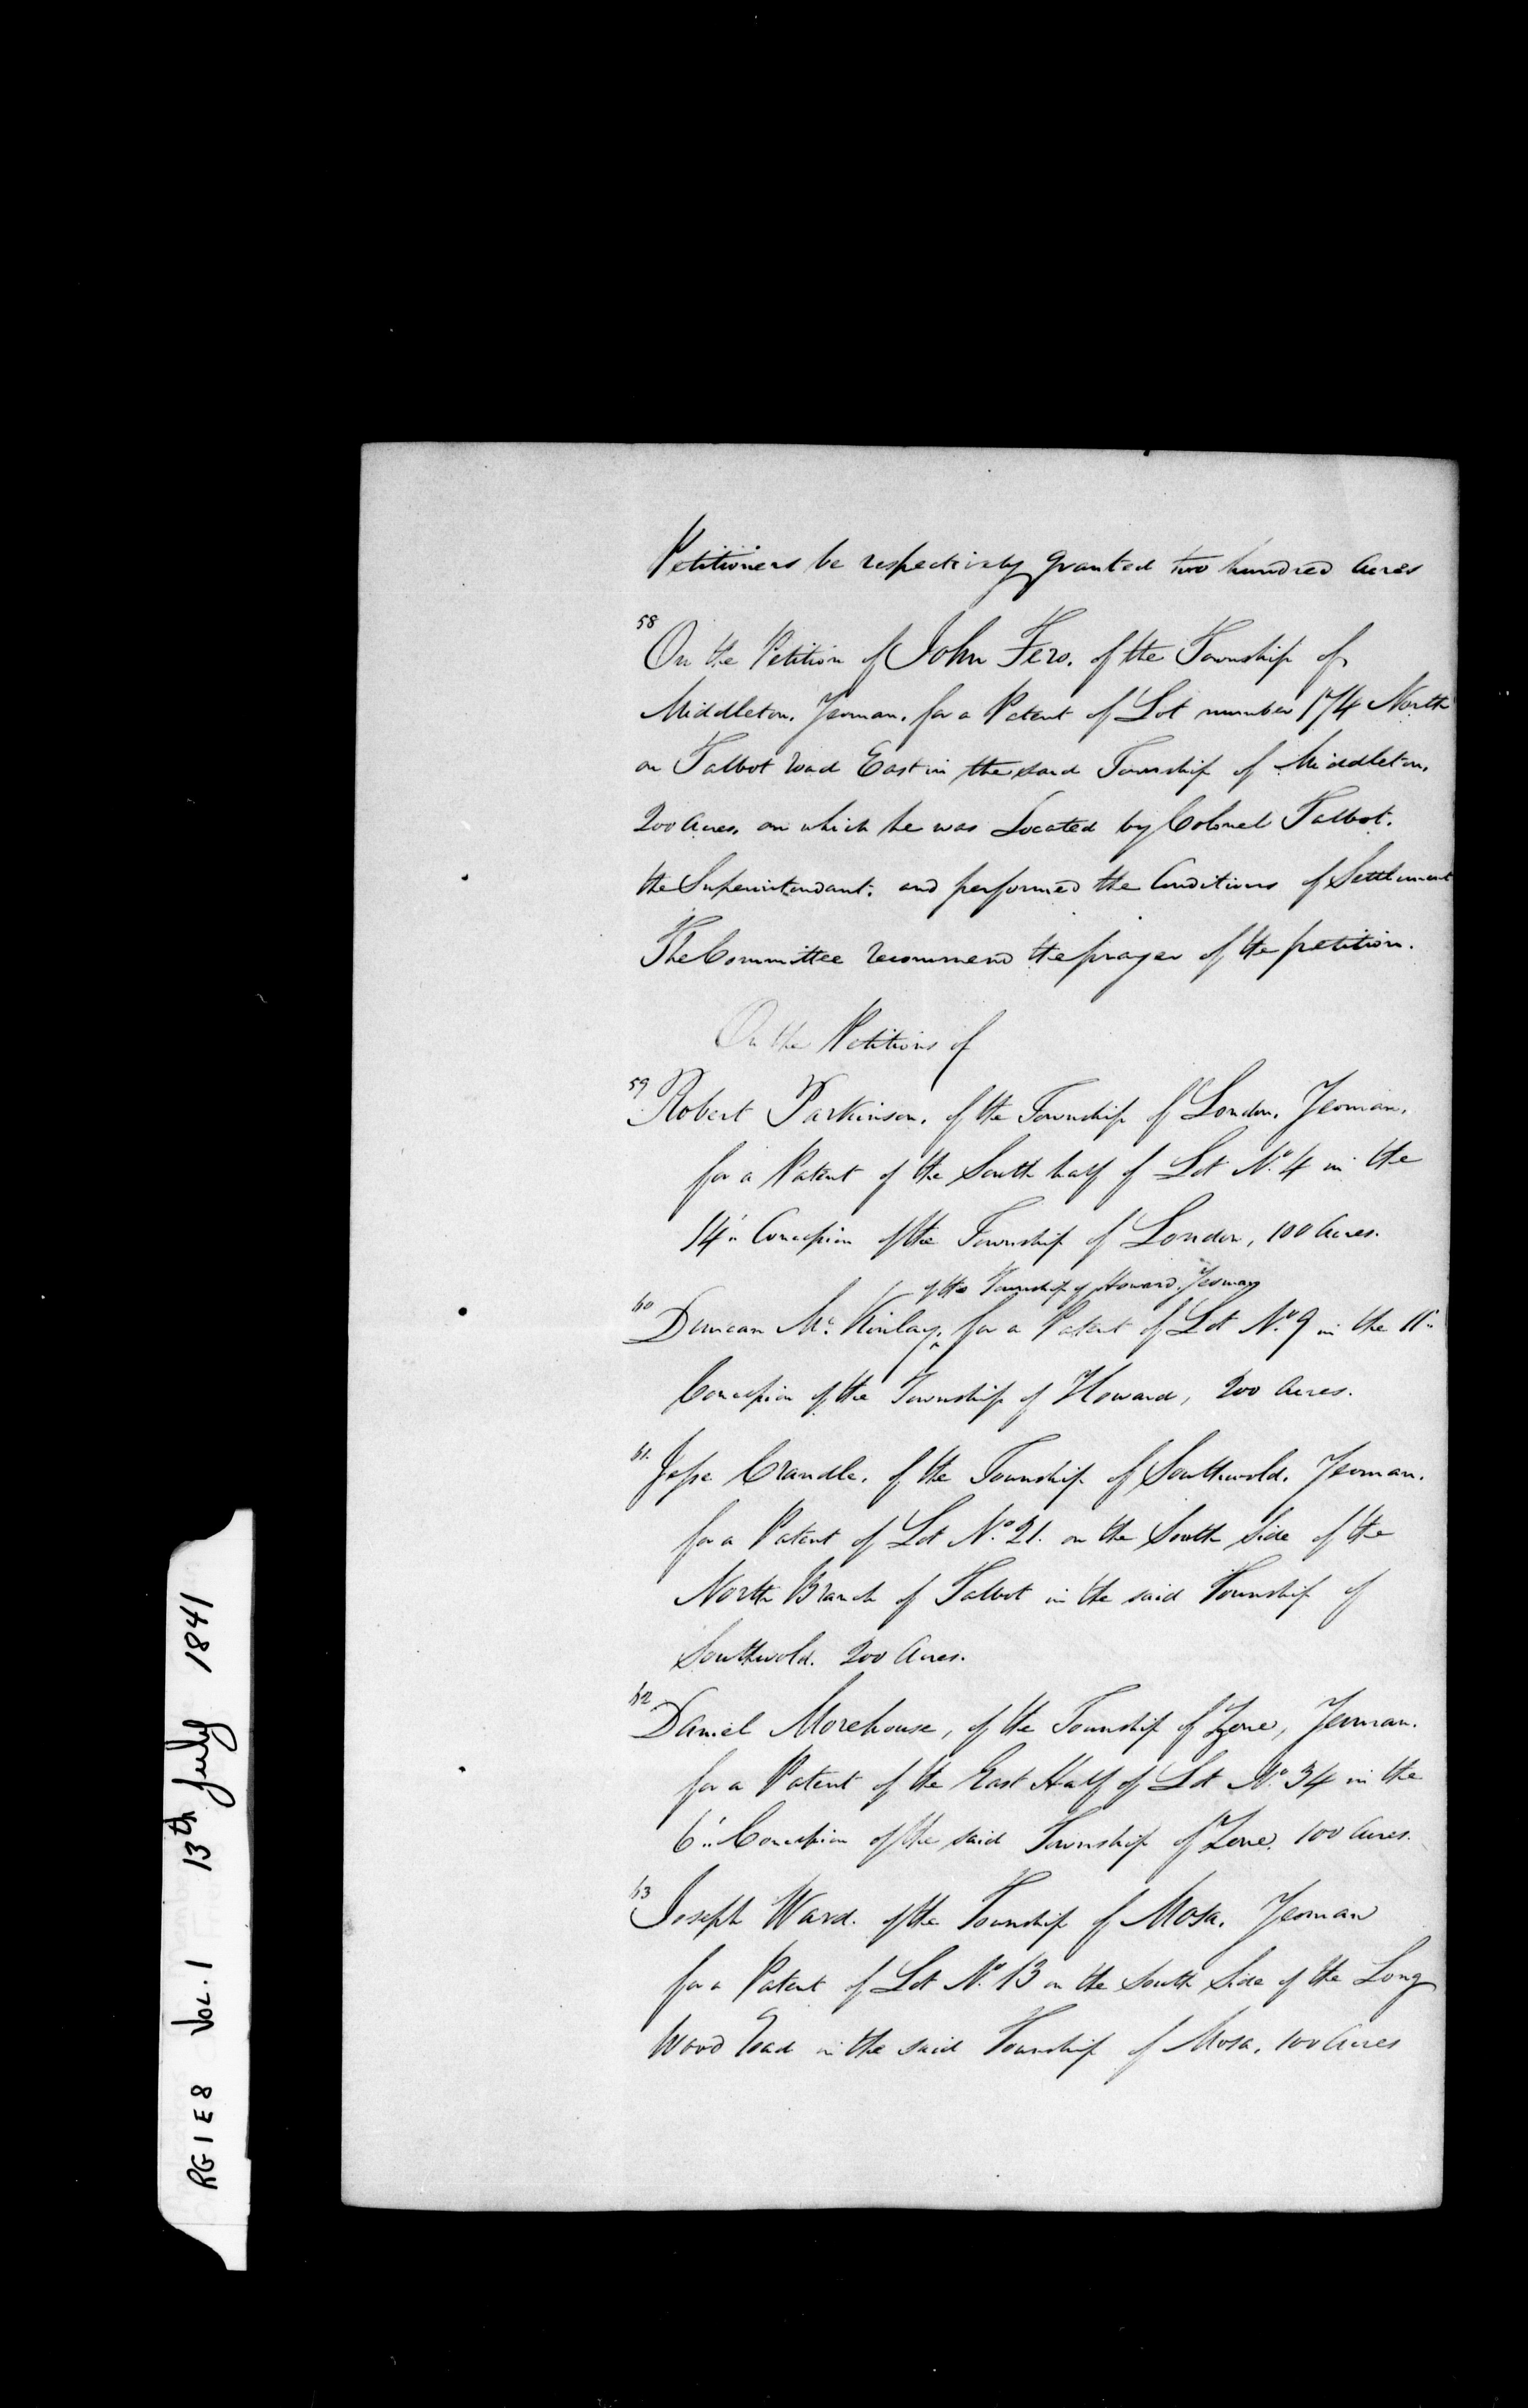 Petitioners be respectively granted two hundred Acres
58
On the Petition of John Fero. of the Township of
Middleton. Yeoman. for a Patent of Lot number 174 North
on Talbot road East in the said Township of Middleton.
200 Acres. on which he was Located by Colonel Talbot.
the Superintendant. and performed the Conditions of Settlement
The Committee recommend the prayer of the petition.
On the Petitions of
59 Robert Parkinson. of the Township of London. Yeoman.
for a Patent of the South half of Lot No. 4 in the
14" Concession of the Township of London, 100 Acres.
of the Township of Howard. Yeoman
60 Duncan Mc Kinlay. for a Patent of Lot No. 9 in the 11"
Concession of the Township of Howard, 200 Acres.
61. Jesse Crandle. of the Township of Southwold. Yeoman.
for a Patent of Lot No. 21. on the South Side of the
North Branch of Talbot in the said Township of
Southwold. 200 Acres.
62 Daniel Morehouse, of the Township of Zone, Yeoman.
for a Patent of the East Half of Lot No. 34 in the
6" Concession of the said Township of Zone. 100 Acres.
63 Joseph Ward. of the Township of Mosa. Yeoman
for a Patent of Lot No. 13 on the South Side of the Long
Wood Road in the said Township of Mosa. 100 Acres
RG 1 E 8 VOL. 1 13th July 1841